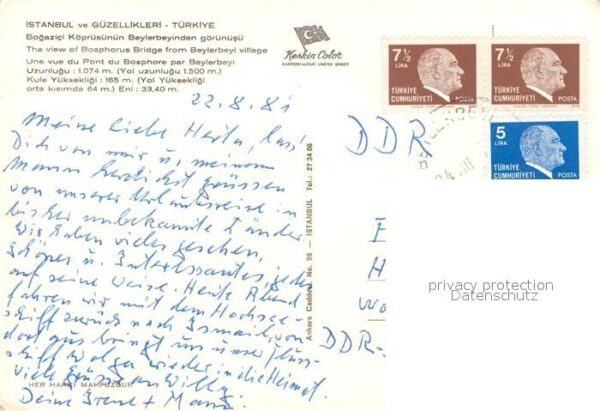 İSTANBUL ve GÜZELLİKLERİ - TÜRKİYE
Boğaziçi Köprüsünün Beylerbeyinden görünüşü
The view of Bosphorus Bridge from Beylerbeyi village
Une vue du Pont du Bosphore par Beylerbeyi
Uzunluğu : 1.074 m. (Yol uzunluğu 1.500 m.)
Kule Yüksekliği : 165 m. (Yol Yüksekliği
orta kısımda 64 m.) Eni : 33,40 m.
Keskin Color
22.8.81
Meine liebe Herta, lass'
Dich von mir u. meinem
Mann herzlichst grüssen
von unserer Urlaubsreise in
bisher unbekannte Länder.
Wir haben vieles gesehen,
Schönes u. Interessantes, jedes
auf seine Weise. Heute Abend
fahren wir mit dem Hochsee-
schiff zurück nach Ismail, von
dort aus bringt uns unser Fluss-
schiff Wolga wieder in die Heimat.
Viele Grüsse an Willy
Deine Irene + Manf.
HER HAKKI MAHFUZDUR
Ankara Caddesi, No. 98 — İSTANBUL Tel.: 27 34 06
DDR
7½
LİRA
TÜRKİYE
CUMHURİYETİ
POSTA
7½
LİRA
TÜRKİYE
CUMHURİYETİ
POSTA
5
LİRA
TÜRKİYE
CUMHURİYETİ
POSTA
F
H
Wo
DDR-
privacy protection
Datenschutz